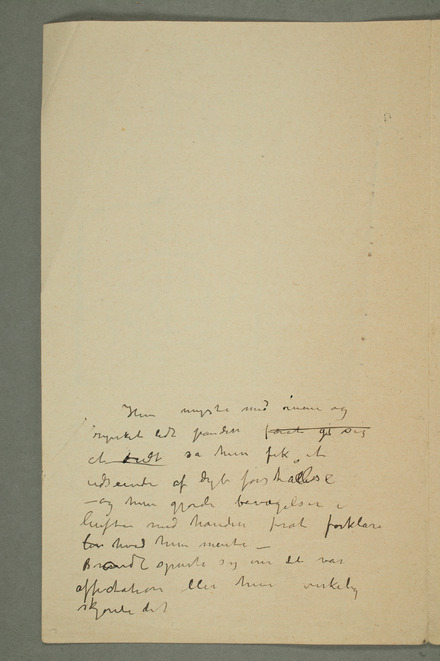 Hun myste med øinene og
rynket lidt panden for at gi sig
et lidt så hun fik et
udseende af dyb forståelse
– og hun gjorde bevægelser i
luften med hånden for at forklare
hvad hun mente –
Brandt spurte sig om det var
affectation eller hun virkelig
skjønte det